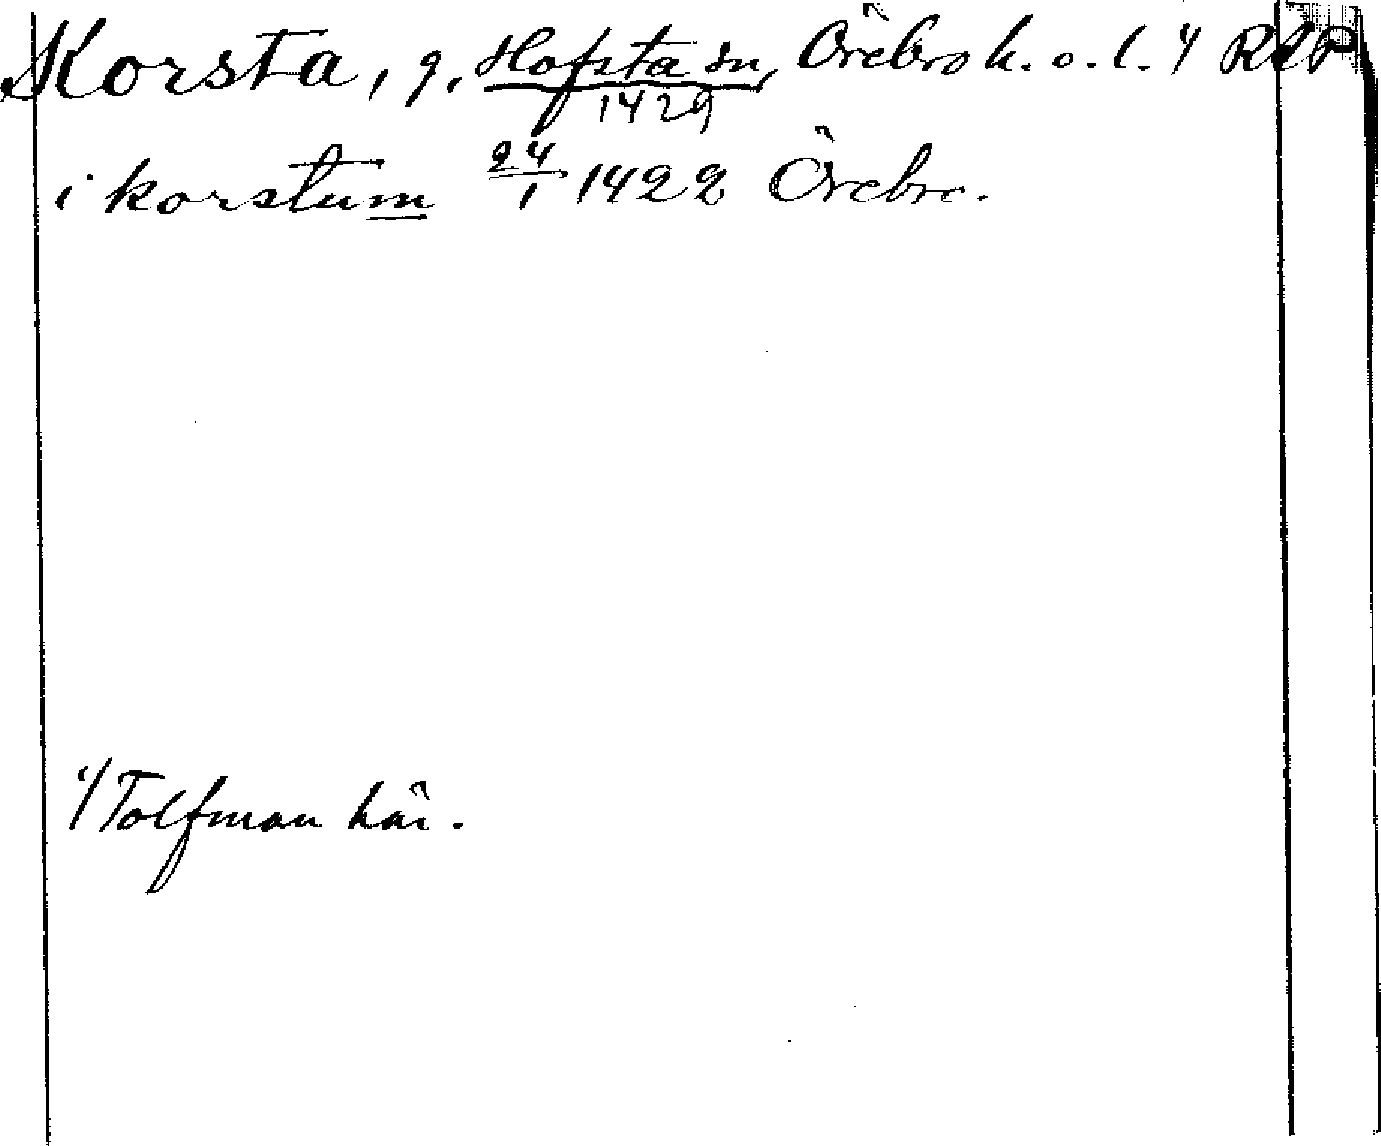 Korsta, g, Hofsta sn, Örebro h. o. l. 1/ RAP
1429
i korstum 24/1 1422 Örebro.
1/ Tolfman här.